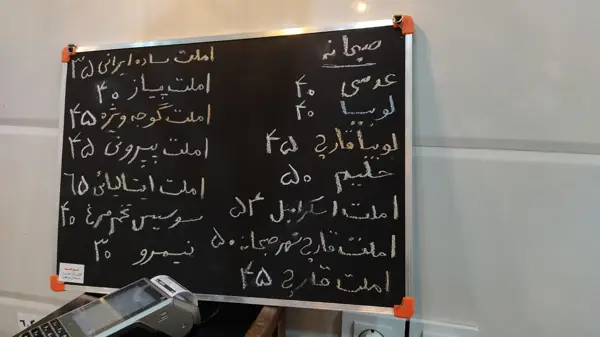 صبحانه
عدسی ۴۰
لوبیا ۴۰
لوبیا قارچ ۴۵
حلیم ۵۰
املت اسکرامبل ۵۴
املت قارچ ۵۰
املت قارچ ۴۵
املت ساده ایرانی ۳۵
املت پیاز ۴۰
املت گوجه ویژه ۴۵
املت پپرونی ۴۵
املت ایتالیائی ۶۵
سوسیس تخم مرغ ۴۰
نیمرو ۳۰